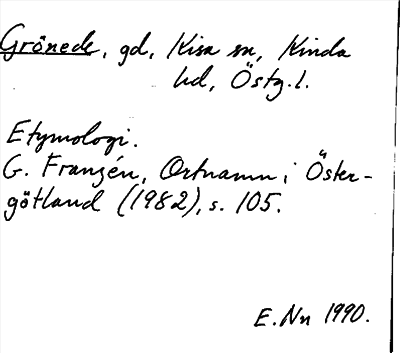 Grönede, gd, Kisa sn, Kinda
hd, Östg.l.
Etymologi.
G. Franzén, Ortnamn i Öster-
götland (1982), s. 105.
E. Nn 1990.